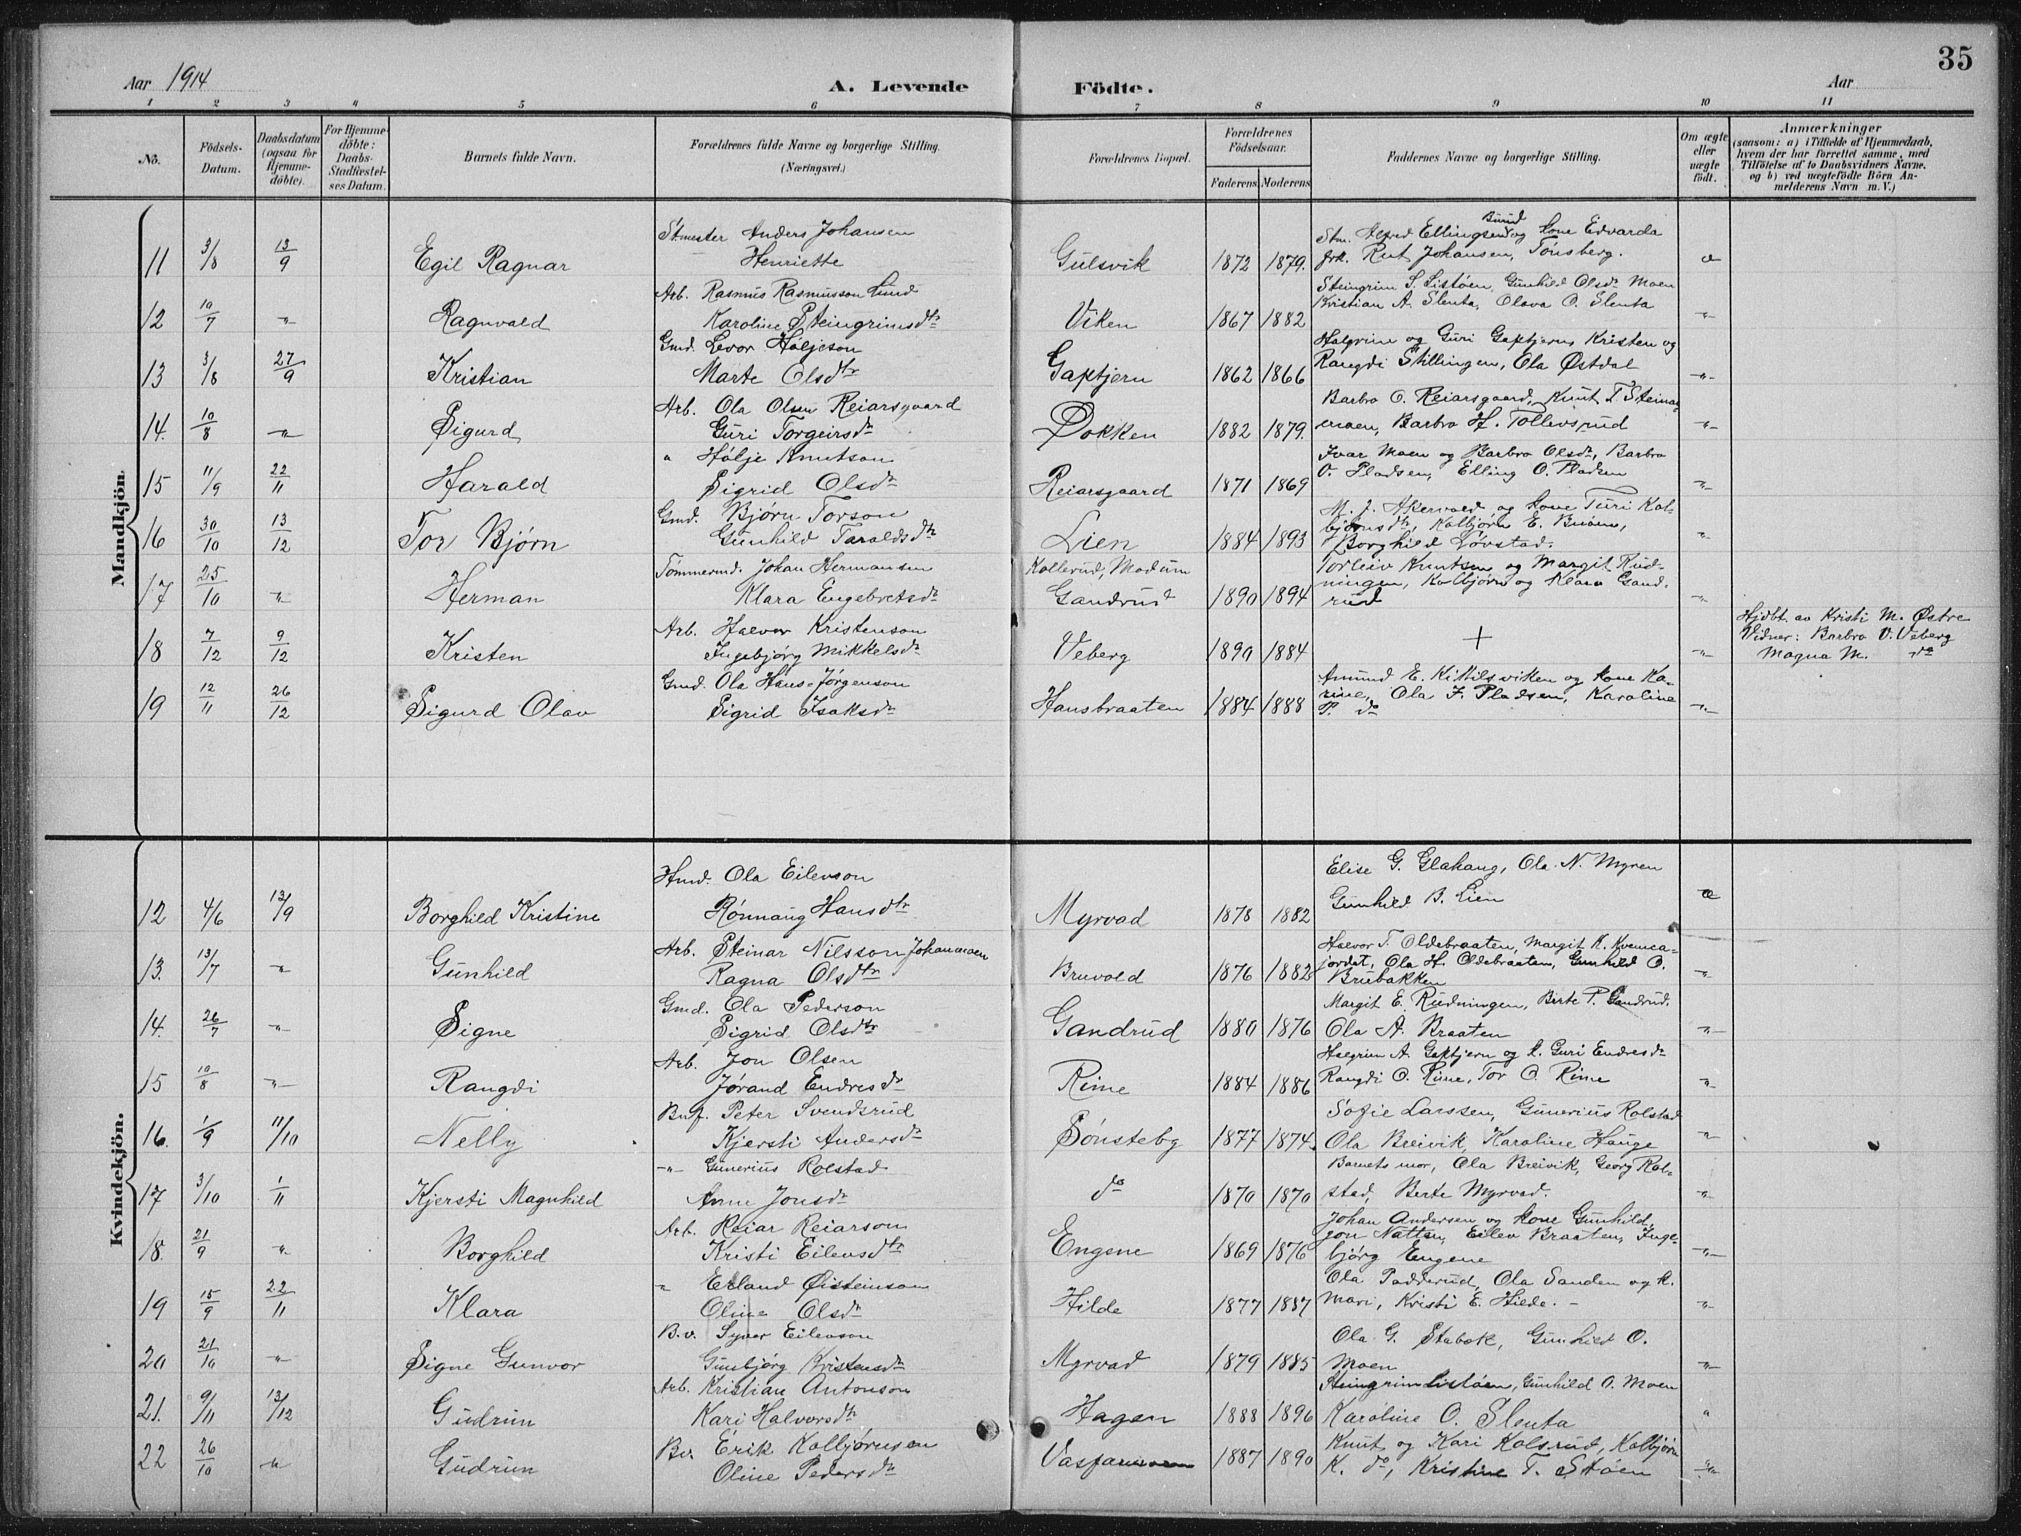 35
Aar 1914
A. Levende Födte.
Aar
1 2 3 4 5 6 7 8 9 10 11
No.
Födsels-Datum.
Daabsdatum (ogsaa for Hjemme-döbte).
For Hjemme-döbte: Daabs-Stadfæstel-ses Datum.
Barnets fulde Navn.
Forældrenes fulde Navne og borgerlige Stilling. (Næringsvei.)
Forældrenes Bopæl.
Forældrenes Födselsaar.
Faderens Moderens
Faddernes Navne og borgerlige Stilling.
Om ægte eller uægte födt.
Anmærkninger
(saasom: a) i Tilfælde af Hjemmedaab, hvem der har forrettet samme, med Tilföielse af to Daabsvidners Navne. og b) ved uægtefödte Börn An-melderens Navn m. V.)
Mandkjön.
11 3/8 13/9 Egil Ragnar Stmester Anders Johansen Henriette Gulsvik 1872 1879. Stm. Alfred Ellingsen Buind og kone Edvarda
frk. Rut Johansen, Tønsberg.
12 10/7 -"- Ragnvald Arb. Rasmus Rasmusson Lund Karoline Steingrimsdtr Viken 1867 1882 Steingrim S. Listøen, Gunhild Olsdtr Moen
Kristian A. Slenta, Olava O. Slenta -"-
13 3/8 27/9 Kristian Gmd. Levor Høljeson Marte Olsdtr Gaptjern 1862 1866 Halgrim og Guri Gaptjern Kristen og
Rangdi Stillingen, Ola Østdal -"-
14. 10/8 -"- Sigurd Arb. Ola Olsen Reiarsgaard Guri Torgeirsdtr Dokken 1882 1879. Barbro O. Reiarsgaard, Knut T. Steinar
moen, Barbro H. Tollevsrud -"-
15 11/9 22/11 Harald " Hølje Knutson Sigrid Olsdtr Reiarsgaard 1871 1869 Ivar Moen og Barbro Olsdtr, Barbro
O. Pladsen, Elling O. Pladsen -"-
16 30/10 13/12 Tor Bjørn Gmd. Bjørn Torson Gunhild Taraldsdtr Lien 1884 1893 M. J. Akervold og kone Turi Kol-
bjørnsdtr, Kolbjørn E.
Borghild Løvstad. "
17 25/10 -"- Herman Tømmermd. Johan Hermansen Klara Engebretsdtr Kollerud, Modum Gandrud 1890 1894 Torleiv Knutsen og Margit Rud-
ningen, Kolbjørn og Klara Gand-
rud -"-
18 7/12 9/12 Kristen Arb. Halvor Kristenson Ingebjørg Mikkelsdtr Veberg 1890 1884 + -"- Hjdbt. av Kristi M. Østre
Vidner: Barbro V. Veberg
Magna M. do
19 12/11 26/12 Sigurd Olav Gmd. Ola Hans-Jørgenson Sigrid Isaksdtr Hansbraaten 1884 1888 Amund E. Kittilsviken og kone Ka-
rine, Ola I. Pladsen, Karoline
P. do -"-
Kvindekjön.
12 4/6 13/9 Borghild Kristine Hmd. Ola Eilevson Rønnaug Hansdtr Myrvad 1878 1882 Elise G. Glahaug, Ola N. Myren
Gunhild B. Lien
13. 13/7 -"- Gunhild Arb. Steinar Nilsson Johannmoen Ragna Olsdtr Bruvold 1876 1882 Halvor T. Oldebraaten, Margit K.
jordet, Ola H. Oldebraaten, Gunhild O.
Brubakken -"-
14. 26/7 -"- Signe Gmd. Ola Pederson Sigrid Olsdtr Gandrud 1880 1876 Margit E. Rudningen, Birte P. Gandrud.
Ola A. Braaten -"-
15 10/8 -"- Rangdi Arb. Jon Olsen Jørand Endresdtr Rime 1884 1886 Halgrim A. Gaptjern og k. Guri Endresdtr
Rangdi O. Rime, Tor O. Rime -"-
16. 1/9 11/10 Nelly Buf. Peter Svendsrud Kjersti Andersdtr Sønsteby 1877 1874. Sofie Larssen, Gunerius Rolstad
Ola Breivik, Karoline Hauge -"-
17 3/10 1/11 Kjersti Magnhild -"- Gunerius Rolstad Anne Jonsdtr do 1870 1870 Barnets mor, Ola Breivik, Georg Rol-
stad, Berte Myrvad. -"-
18. 21/9 -"- Borghild Arb. Reiar Reiarson Kristi Eilevsdtr Engene 1869 1876 Johan Andersen og kone Gunhild,
Jon Eilev Braaten, Inge-
bjørg Engene -"-
19 15/9 22/11 Klara " Erland Øisteinson Oline Olsdtr Hilde 1877 1887 Ola Padderud, Ola Sanden og k.
Mari, Kristi E. Hilde. -"-
20 21/10 -"- Signe Gunvor B.v. Syver Eilevson Gunbjørg Kristensdtr Myrvad 1879 1885 Ola G. Stabek, Gunhild O.
Moen -"-
21. 9/11 13/12 Gudrun Arb. Kristian Antonson Kari Halvorsdtr Hagen 1888 1896 Steingrim Listøen, Gunhild O. Moen
Karoline O. Slenta "
22 26/10 -"- Gudrun Bv. Erik Kolbjørnsen Oline Pedersdtr 1887 1890 Knut og Kari Kolsrud, Kolbjørn
K. do, Kristine T. Støen -"-